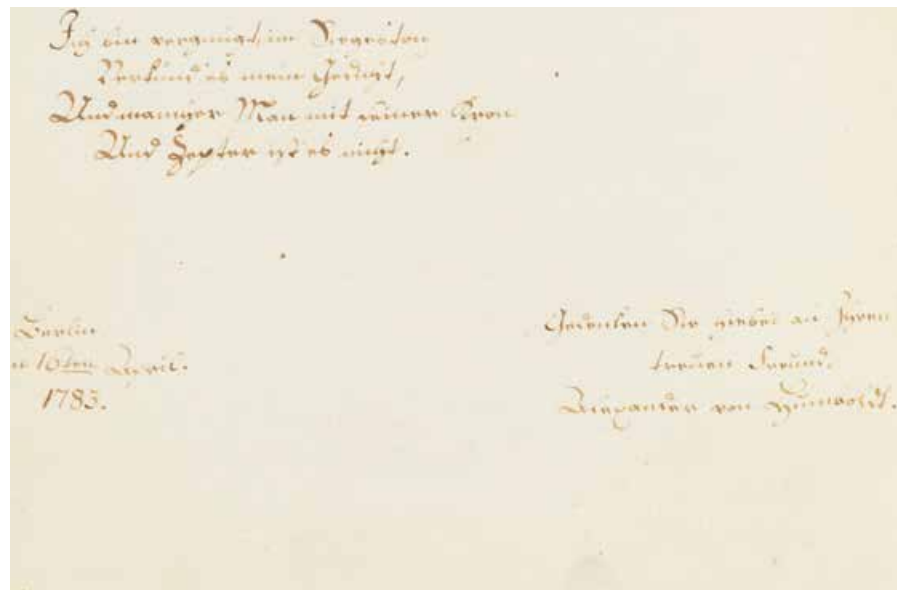 Ich bin vergnügt, im Siegeston
Verkünd' es mein Gedicht,
Und mancher Man mit seiner Kron
Und Zepter ist es nicht.
Berlin
n 16ten April.
1783.
Gedenken Sie hiebei an Ihren
treuen Freund.
Alexander von Humboldt.